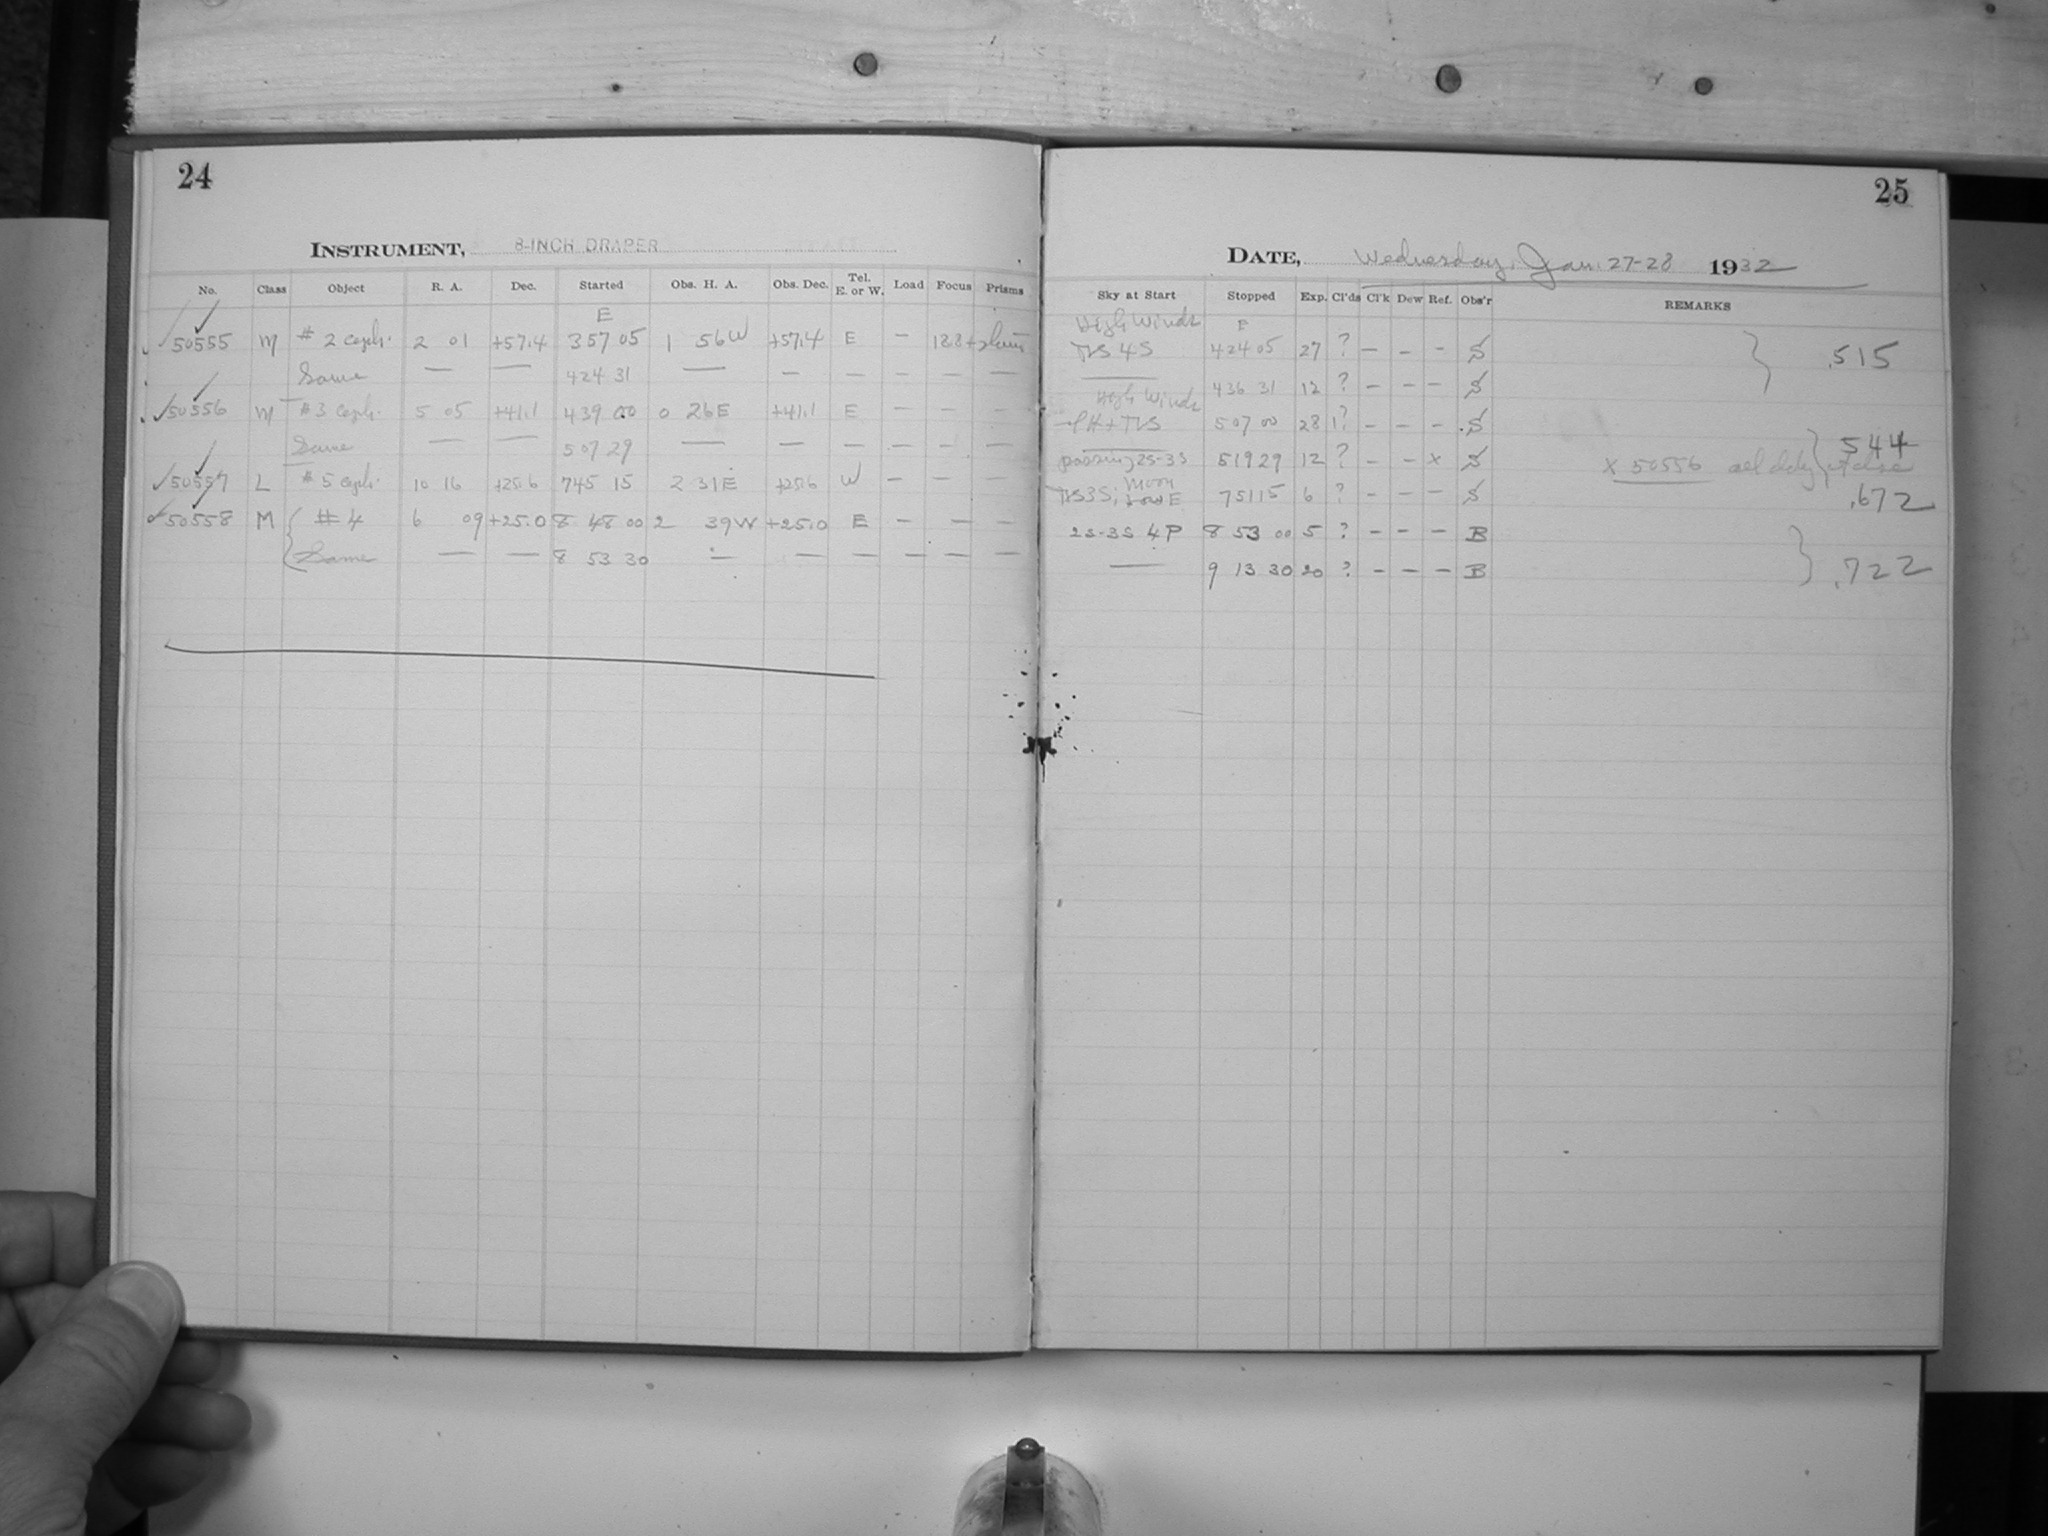 24
INSTRUMENT, 8-INCH DRAPER
No. Class Object R. A. Dec. Started Obs. H. A. Obs. Dec. Tel. E. or W. Load Focus Prisms
E
50555 M # 2 ceph. 2 01 +57.4 357 05 1 56 W +57.4 E —
Same — — 424 31 — — — — — —
50556 M #3 ceph. 5 05 +41.1 439 00 0 26 E +41.1 E — — —
Same — — 507 29 — — — — — —
50557 L #5 ceph. 10 16 +25.6 745 15 2 31 E +25.6 W — — —
50558 M #4 6 09 +25.0 8 48 00 2 39 W +25.0 E — — —
Same — — 8 53 30 — — — — — —
25
DATE, Wednesday, Jan. 27-28 1932
Sky at Start Stopped Exp. Cl'ds Cl'k Dew Ref. Obs'r REMARKS
High Winds E
TVS 4S 424 05 27 ? — — — S .515
— 436 31 12 ? — — — S
High Winds
PH+TVS 507 00 28 1? — — — S
passing 2S-3S 519 29 12 ? — — x S x 50556 .544
TVS 3S; moon low E 751 15 6 ? — — — S .672
2S-3S 4P 8 53 00 5 ? — — — B
— 9 13 30 20 ? — — — B .722